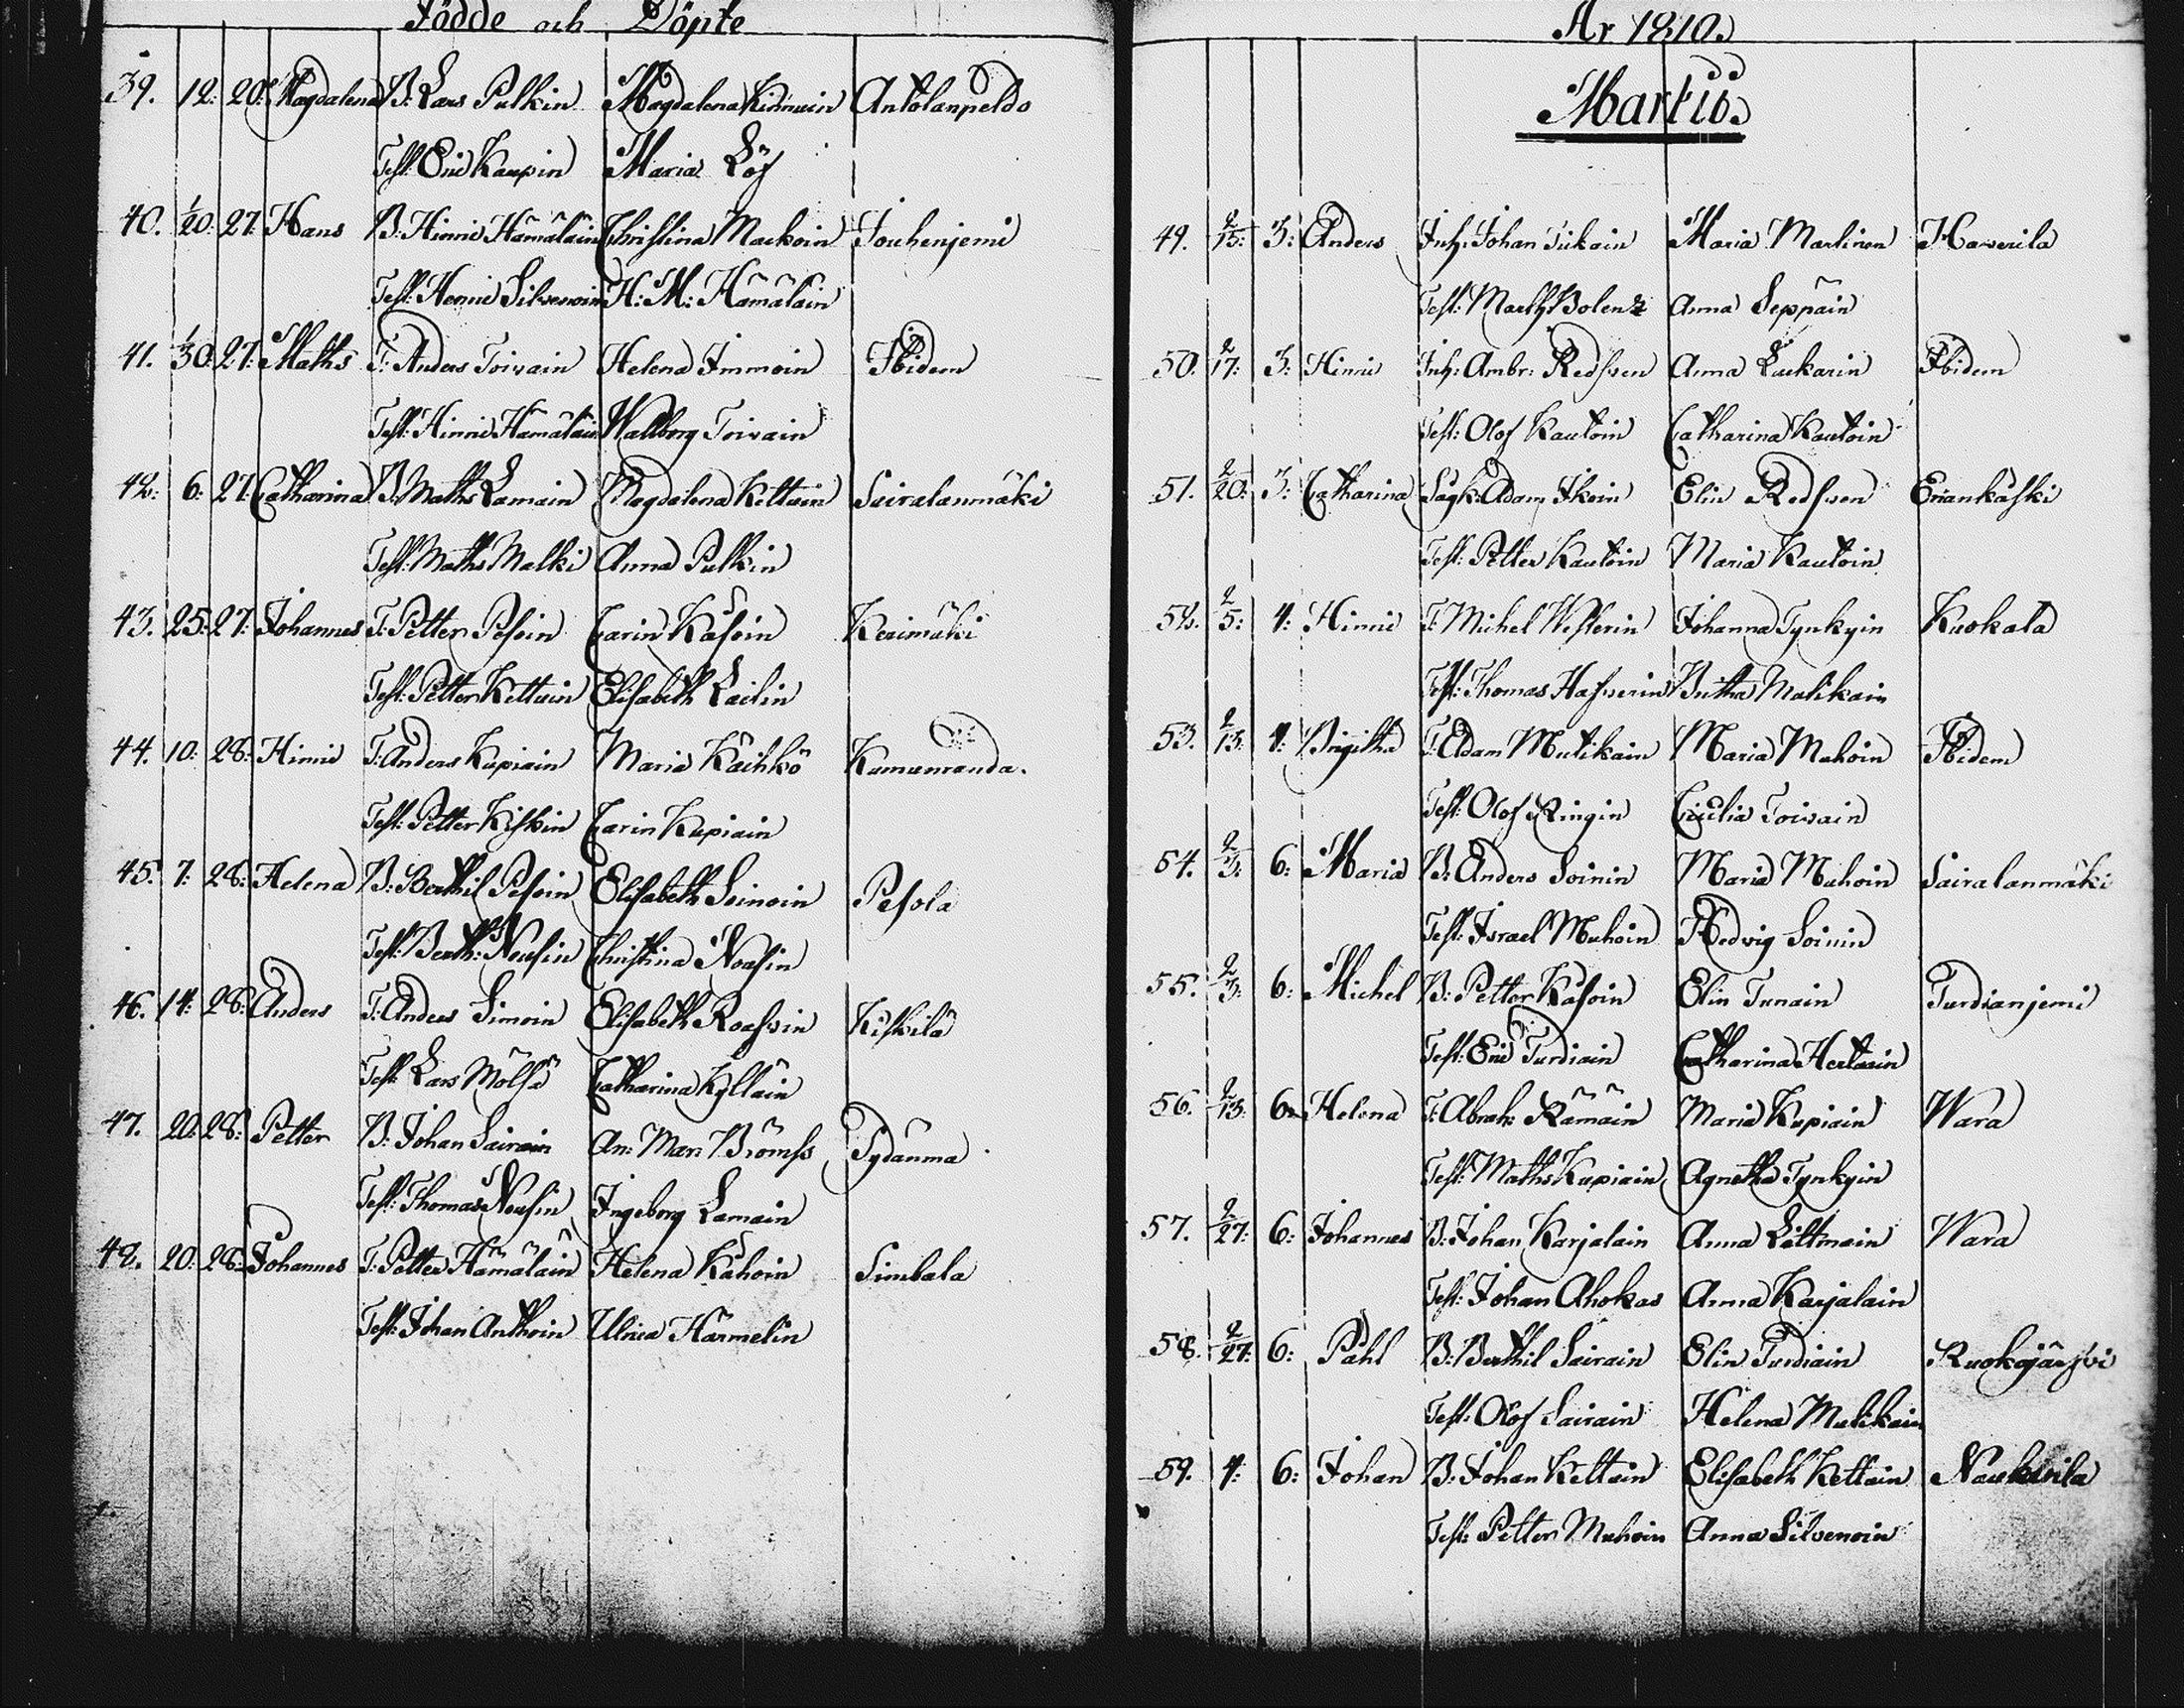 Födde och Döpte
39. 12: 20: Magdalena B: Lars Pulkin Magdalena Kinnuin Antolanpeldo
Test: Eric Kaupin Maria Löf
40. 1/20: 27: Hans B: Hinric Hämäläin Christina Mackoin Jouhenjemi
Test: Henric Silvenoin H: M: Hämäläin
41. 1/30: 27: Maths T: Anders Toivain Helena Immoin Ibidem
Test: Hinric Hämäläin Wallborg Toivain
42: 6: 27: Catharina B: Maths Lamain Magdalena Kettuin Sairalanmäki
Test: Maths Malki Anna Pulkin
43. 25: 27: Johannes T: Petter Pesoin Carin Käsoin Kerimäki
Test: Petter Kettuin Elisabeth Lailin
44. 10: 28: Hinric T: Anders Kupiain Maria Käihkö Kumunranda.
Test: Petter Kiskin Carin Kupiain
45. 7: 28: Helena B: Berthil Pesoin Elisabeth Soinoin Pesola
Test: Berth: Nousin Christina Nousin
46. 14: 28: Anders T: Anders Simoin Elisabeth Roasvin Kiskilä
Test: Lars Mölsä Catharina Kylläin
47. 20: 28: Petter B: Johan Sairain An: Mar: Brömss Sydänma
Test: Thomas Nousin Ingeborg Lamain
48. 20: 28: Johannes T: Petter Hämäläin Helena Kähoin Simbala
Test: Johan Anthoin Ulrica Härmelin
År 1810.
Martii.
49. 2/15: 3: Anders Inh: Johan Tiikain Maria Martinen Haverila
Test: Math: Bolenz Anna Seppäin
50. 2/17: 3: Hinric Inh: Ambr: Redsven Anna Laukarin Ibidem
Test: Olof Kautoin Catharina Kautoin
51. 2/20: 3: Catharina Sågk: Adam Ikoin Elin Redsven Eriankäski
Test: Petter Kautoin Maria Kautoin
52. 2/5: 4: Hinric T: Michel Westerin Johanna Tynkyin Kuokala
Test: Thomas Hasverin Britha Matikain
53. 2/13: 4: Brigitha T: Adam Mutikain Maria Muhoin Ibidem
Test: Olof Ringin Cicilia Toivain
54. 2/3: 6: Maria B: Anders Soinin Maria Muhoin Sairalanmäki
Test: Israel Muhoin Hedvig Soinin
55. 2/3: 6: Michel B: Petter Käsoin Elin Tunain Turdianjemi
Test: Eric Turdiain Catharina Hertain
56. 2/13: 6: Helena T: Abrah: Rämäin Maria Kupiain Wara
Test: Maths Kupiain Agnetha Tynkyin
57. 2/27: 6: Johannes B: Johan Karjalain Anna Lättmain Wara
Test: Johan Ahokas Anna Karjalain
58. 2/27: 6: Påhl B: Berthil Sairain Elin Turdiain Ruokojärfvi
Test: Olof Sairain Helena Mutikain
59. 4: 6: Johan B: Johan Kettuin Elisabeth Kettuin Naukivila
Test: Petter Muhoin Anna Silvenoin